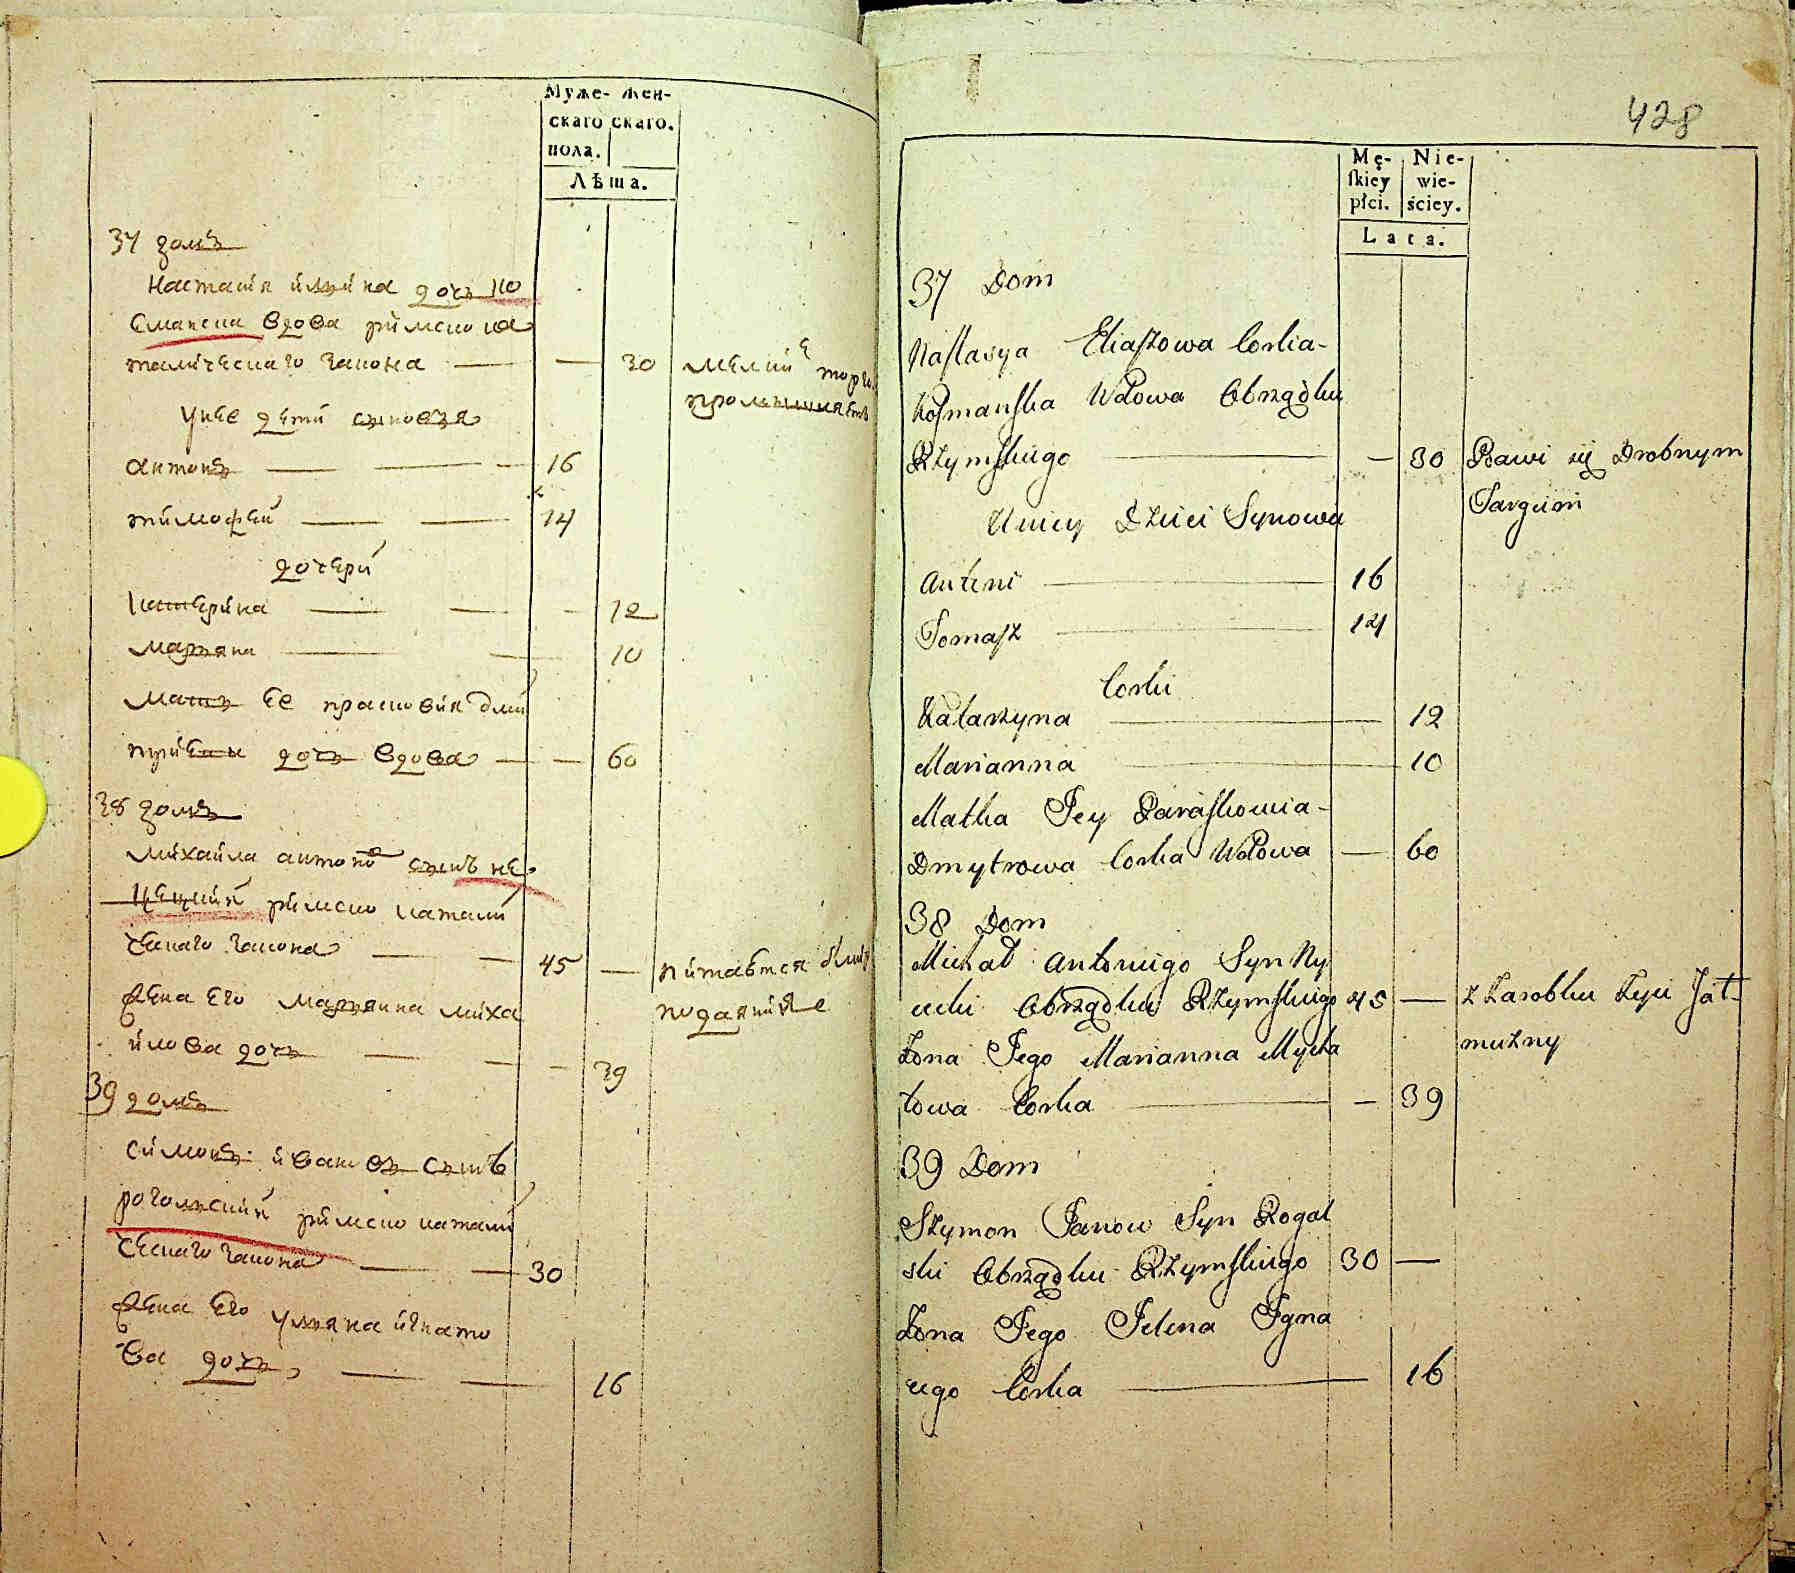 Муже- Жен-
скаго скаго.
пола.
Лѣта.
37 домъ
Настасія илїина дочь ко
сманска вдова римско ка
толическаго закона — — 30 мелкие торги
промышляетъ
Унее дети сыновья
антонъ — — — 16
тимофей — — 14
дочери
катерина — — — 12
марьяна — — 10
мать ее прасковия дми
триева дочь вдова — — 60
38 домъ
михайла антоновъ сынъ не
цецкий римско католи
ческаго закона — — 45 — питается
подаяние
жена Его марьянна миха
йлова дочь — — — 39
39 домъ
симонъ ивановъ сынъ
рогальский римско католи
ческаго закона — — 30
жена Его ульяна игнато
ва дочь, — — 16
428
Mę- Nie-
ſkiey wie-
płci. ściey.
Lata.
37 Dom
Naſtasya Eliaſzowa Corka-
Koſmanſka Wdowa Obrządku
Rzymſkiego — — 30 Bawi się Drobnym
Targiem
U niey Dzieci Synowie
Antoni — 16
Tomaſz — 14
Corki
Katarzyna — 12
Marianna — 10
Matka Jey Paraſkowia-
Dmytrowa Corka Wdowa — 60
38 Dom
Michał Antoniego Syn Ny
cecki Obrządku Rzymſkiego 45 — z Zarobku Żyie Jał-
mużny
Zona Jego Marianna Mycha
łowa Corka — — 39
39 Dom
Szymon Janow Syn Rogal
ski Obrządku Rzymſkiego 30 —
Zona Jego Jelena Igna
cego Corka — 16